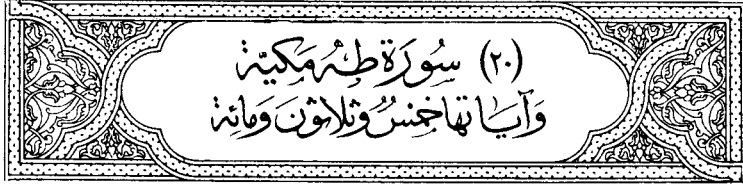 (٢٠) سُورَة طٰهٰ مَكيّة
وَآيَاتها خَمسٌ وَثلاثونَ وَمائة